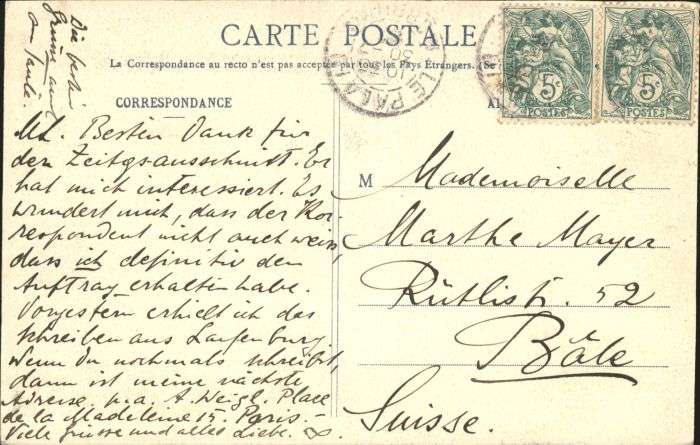 CARTE POSTALE
La Correspondance au recto n'est pas acceptée par tous les Pays Étrangers. (Se
CORRESPONDANCE
LE PALAI
5c
POSTES
5c
POSTES
Die besten
Grüsse auch
an Paula.
ML. Besten Dank für
den Zeitgsausschnitt. Er
hat mich interessiert. Es
wundert mich, dass der Kor-
respondent nicht auch weiss,
dass ich definitiv den
Auftrag erhalten habe.
Vorgestern erhielt ich das
Schreiben aus Laufenburg.
Wenn Du nochmals schreibst,
dann ist meine nächste
Adresse p.a. A. Weigl. Place
de la Madeleine 15. Paris.-
Viele Grüsse und alles Liebe.
M Mademoiselle
Marthe Mayer
Rütlistr. 52
Bâle
Suisse.